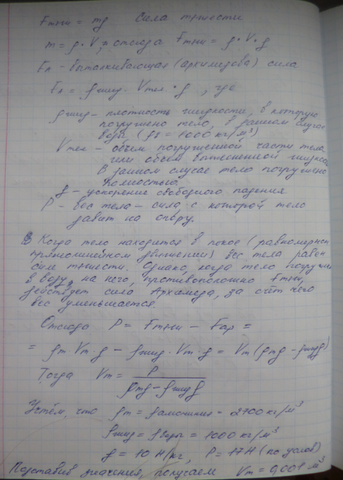 Fтяж = mg Сила тяжести
m = ρ·V, отсюда Fтяж = ρ·V·g
FА - выталкивающая (архимедова) сила
FА = ρжид · Vтел · g, где
ρжид - плотность жидкости, в которую
погружено тело, в данном случае
вода (ρв = 1000 кг/м³)
Vтел - объём погруженной части тела,
или объём вытесненной жидкости
В данном случае тело погружено
полностью.
g - ускорение свободного падения
P - вес тела - сила с которой тело
давит на опору.
Когда тело находится в покое (равномерном
прямолинейном движении) вес тела равен
силе тяжести. Однако, когда тело погружено
в воду, на него, противоположно Fтяж
действует сила Архимеда, за счёт чего
вес уменьшается.
Отсюда P = Fтяж - Fар =
= ρт Vт g - ρжид · Vт · g = Vт (ρтg - ρжидg)
Тогда Vт = P / ρтg - ρжидg
Учтём, что ρт = ρалюминия = 2700 кг/м³
ρжид = ρводы = 1000 кг/м³
g = 10 Н/кг, P = 17Н (по услов)
Подставив значения, получаем Vт = 0,001 м³